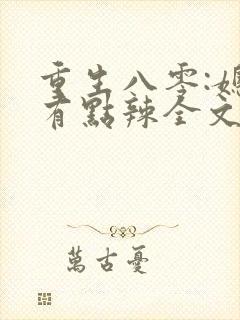 重生八零:媳
有點辣全文
萬古憂